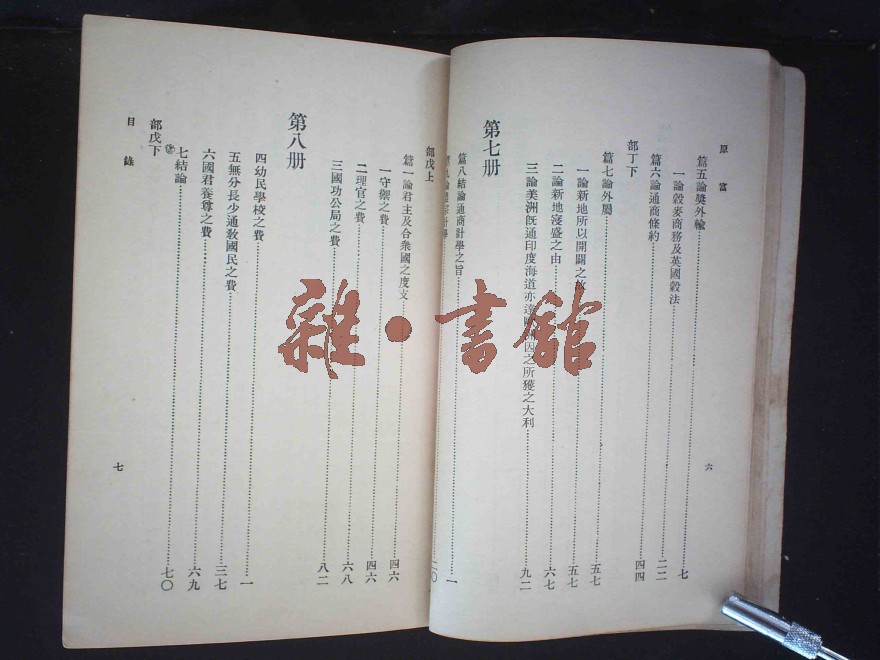 原富
篇五論獎外輸 七
一論穀麥商務及英國穀法 二二
篇六論通商條約 四四
部丁下
篇七論外屬 五七
一論新地所以開闢之故 五七
二論新地寖盛之由 六七
三論美洲旣通印度海道亦達 因之所獲之大利 九二
六
第七册
篇八結論通商計學之旨 一
二〇
部戊上
篇一論君主及合衆國之度支 四六
一守禦之費 四六
二理官之費 六八
三國功公局之費 八二
第八册
四幼民學校之費 一
五無分長少通敎國民之費 三七
六國君養尊之費 六九
七結論 七〇
部戊下
目錄
七
雜·書館